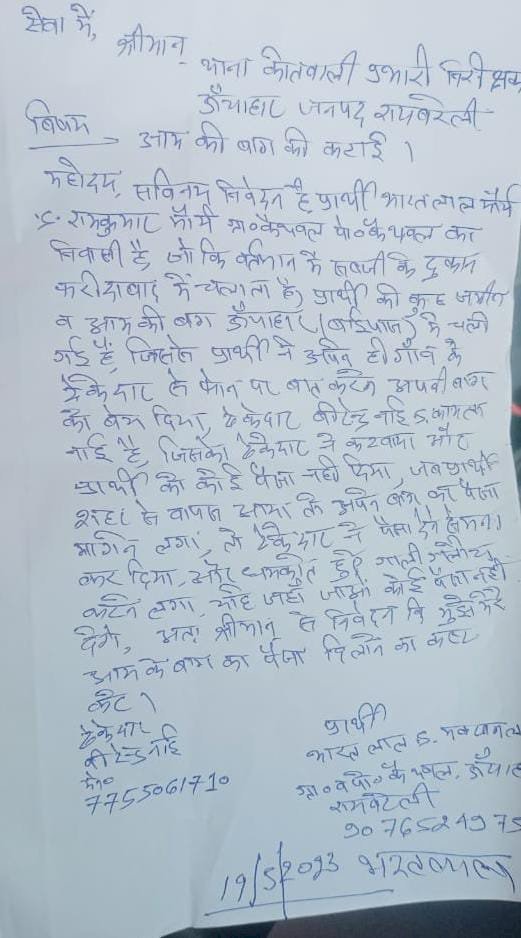 सेवा में,
श्रीमान्
थाना कोतवाली प्रभारी निरीक्षक
ऊँचाहार जनपद रायबरेली
विषय - आम की बाग की कटाई ।
महोदय, सविनय निवेदन है, प्रार्थी भारत लाल मौर्य
S. रामकुमार मौर्य ग्रा० कैथवल पो० कैथवल का
निवासी है, जो कि वर्तमान में सब्जी के दुकान
फरीदाबाद में चलाता है, प्रार्थी की कुछ जमीन
व आम की बाग ऊँचाहार में चली
गई है, जिसने प्रार्थी ने अपने ही गाँव के
ठेकेदार से फोन पर बात करके अपनी बाग
को बेच दिया, ठेकेदार बीरेन्द्र नाई S.
नाई है, जिसको ठेकेदार ने कटवाया और
प्रार्थी को कोई पैसा नहीं दिया, जब प्रार्थी
शहर से वापस आया तो अपने बाग का पैसा
मांगने लगा, तो ठेकेदार ने पैसा देने से मना
कर दिया, और धमकाते हुए गाली गलौज
करने लगा, चाहे जहाँ जाओ कोई पैसा नहीं
देंगे, अतः श्रीमान से निवेदन कि मुझे मेरे
आम के बाग का पैसा दिलाने का कष्ट
करें ।
ठेकेदार
बीरेन्द्र नाई
मो०
7755061710
प्रार्थी
भारत लाल S.
ग्रा० व पो० कैथवल, ऊँचाहार
रायबरेली
9076524975
19/5/2023 भारतलाल